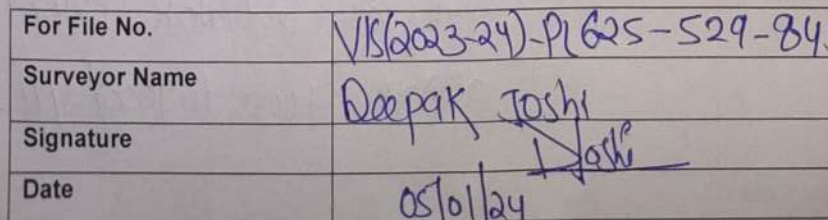 For File No. VIS(2023-24)-PL625-529-84.
Surveyor Name Deepak Joshi
Signature Joshi
Date 05/01/24